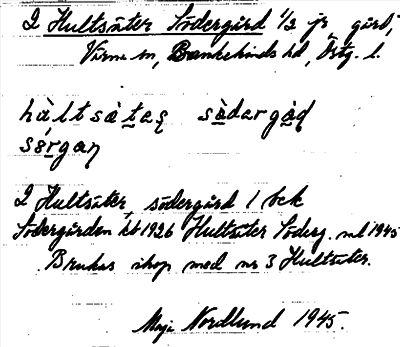 2 Hultsäter Södergård 1/2 jr gård,
Värna sn, Bankekinds hd, Östg. l.
hàltsàtaȩ sòdargàd
sórgan
2 Hultsäter, södergård 1 bck
Södergården kb 1926 Hultsäter Söderg. ml 1945
Brukas ihop med nr 3 Hultsäter.
Maja Nordlund 1945.